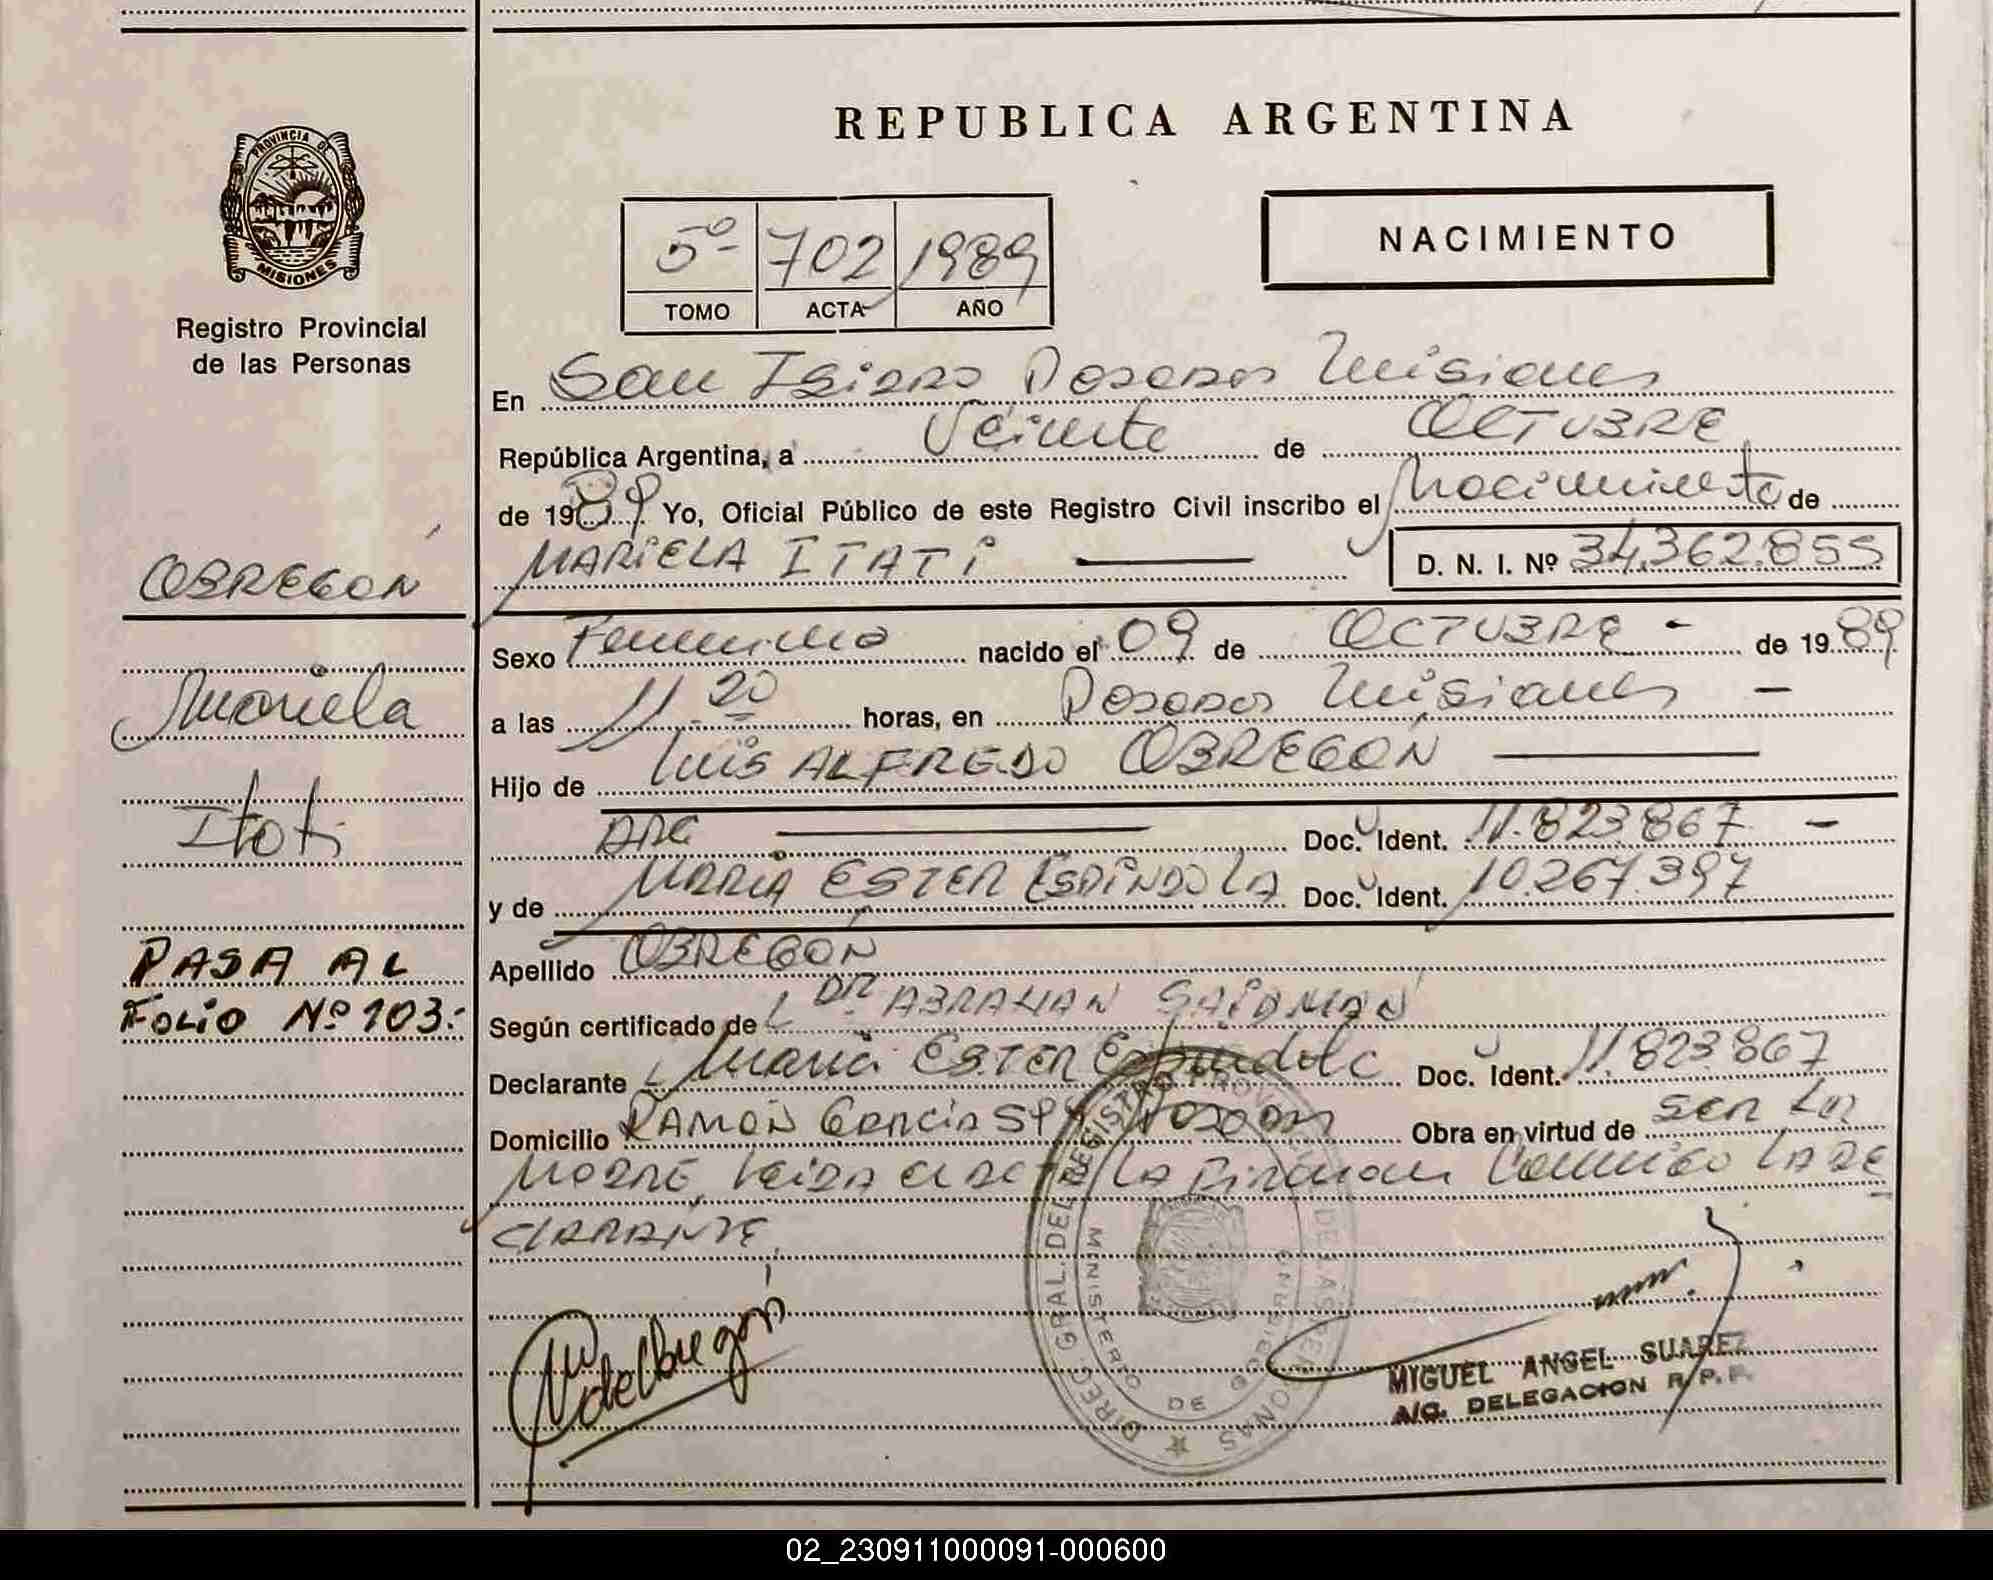 PROVINCIA DE
MISIONES
Registro Provincial
de las Personas
OBREGON
Mariela
Itati
PASA AL
FOLIO Nº 103:-
REPUBLICA ARGENTINA
5º 702 1989
TOMO ACTA AÑO
NACIMIENTO
En San Isidro Posadas Misiones
República Argentina, a Veinte de OCTUBRE
de 1989 Yo, Oficial Público de este Registro Civil inscribo el Nacimiento de
MARIELA ITATI
D. N. I. Nº 34.362.855
Sexo Femenino nacido el 09 de OCTUBRE - de 1989
a las 11.20 horas, en Posadas Misiones -
Hijo de Luis ALFREDO OBREGON
ARG Doc. Ident. 11.823.867 -
y de MARIA ESTER ESPINDOLA Doc. Ident. 10.267.397
Apellido OBREGON
Según certificado de DR. ABRAHAN
Declarante Maria ESTER Espindola Doc. Ident. 11.823.867
Domicilio RAMON Garcia Posadas Obra en virtud de SER LA
MADRE, Leida el acta La firman Conmigo LA DE
CLARANTE.
DIREC. GRAL. DEL REGISTRO PROVINCIAL DE LAS PERSONAS
MINISTERIO DE GOBIERNO
MIGUEL ANGEL SUAREZ
A/C. DELEGACION R.P.P.
02_230911000091-000600